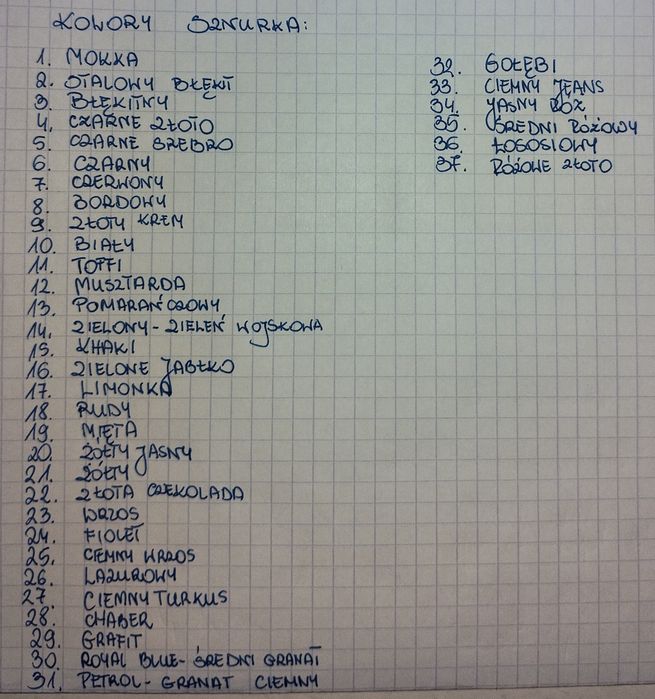 KOLORY SZNURKA:
1. MOKKA
2. STALOWY BŁĘKIT
3. BŁĘKITNY
4. CZARNE ZŁOTO
5. CZARNE SREBRO
6. CZARNY
7. CZERWONY
8. BORDOWY
9. ZŁOTY KREM
10. BIAŁY
11. TOFFI
12. MUSZTARDA
13. POMARAŃCZOWY
14. ZIELONY - ZIELEŃ WOJSKOWA
15. KHAKI
16. ZIELONE JABŁKO
17. LIMONKA
18. RUDY
19. MIĘTA
20. ŻÓŁTY JASNY
21. ŻÓŁTY
22. ZŁOTA CZEKOLADA
23. WRZOS
24. FIOLET
25. CIEMNY WRZOS
26. LAZUROWY
27. CIEMNY TURKUS
28. CHABER
29. GRAFIT
30. ROYAL BLUE - ŚREDNI GRANAT
31. PETROL - GRANAT CIEMNY
32. GOŁĘBI
33. CIEMNY JEANS
34. JASNY RÓŻ
35. ŚREDNI RÓŻOWY
36. ŁOSOSIOWY
37. RÓŻOWE ZŁOTO